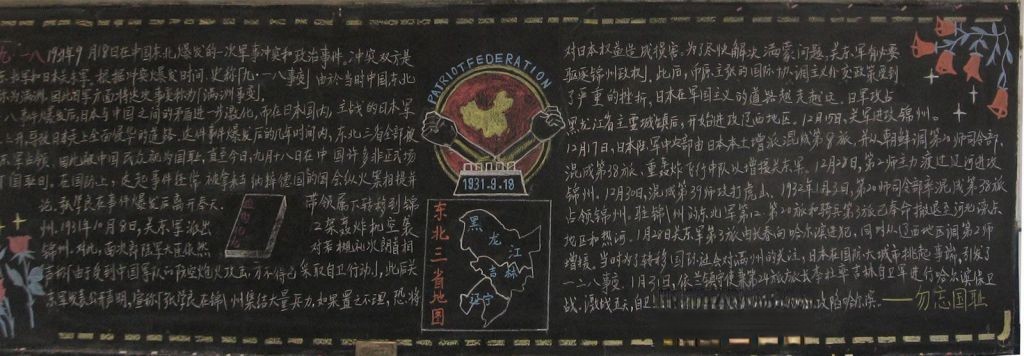 九·一八 1931年9月18日在中国东北爆发的一次军事冲突和政治事件。冲突双方是
东北军和日本关东军
八事件爆发后,日本与中国之间的矛盾进一步激化,而在日本国内,主战的日本军
这件事件爆发后的几年时间内,东北三省全部被
因此被中国民众视为国耻,直至今日,九月十八日在中国许多非正式场
国耻日。在国际上,这起事件往常被拿来纳粹德国的国会纵火案相提并
论。张学良在事件爆发后离开奉天、
州。1931年10月8日,关东军派出
锦州。对此,
宣称「由于受到中国军队的防空炮火攻击,才不得已采取自卫行动」,此后关
东军发表公开声明,宣称「张学良在锦州集结大量兵力,如果置之不理,恐将
带领属下转移到锦
2架轰炸机空袭
对若槻礼次郎首相
PATRIOTFEDERATION
1931.9.18
东北三省地图
黑龙江
吉林
辽宁
对日本权益造成损害。为了尽快解决满蒙问题,关东军有必要
驱逐锦州政权」。此后,币原主张的国际协调主义外交政策受到
了严重的挫折,日本在军国主义的道路越走越远。日军攻占
黑龙江省主要城镇后,开始进攻辽西地区。12月15日,关军进攻锦州。
12月17日,日本陆军中央部由日本本土增派混成第8旅,并从朝鲜调第20师司令部、
混成第38旅、重轰炸飞行中队以增援关东军。12月28日,第2师主力渡过辽河进攻
锦州。12月30日,混成第39师攻打虎山、1932年1月3日,第20师司令部率混成第38旅
占领锦州。驻锦州的东北军第12、第20旅和骑兵第3旅已奉命撤退至河北滦点
地区和热河。1月28日关东军第3旅由长春向哈尔滨进犯,同时从辽西地区调第2师
增援。当时为了转移国际社会对满州的关注,日本在国际大城市挑起事端,引发了
一二八事变。1月31日,依兰镇守
吉林自卫军进行哈尔滨保卫
战。激战五天,自卫
攻陷哈尔滨。
——勿忘国耻